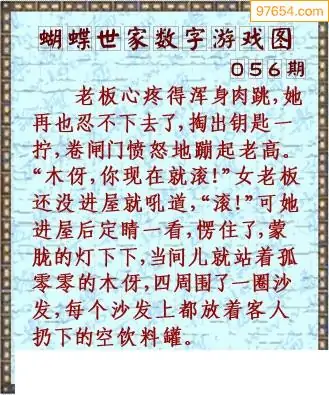 97654.com
蝴蝶世家数字游戏图
056期
老板心疼得浑身肉跳,她
再也忍不下去了,掏出钥匙一
拧,卷闸门愤怒地蹦起老高。
“木伢,你现在就滚!”女老板
还没进屋就吼道,“滚!”可她
进屋后定睛一看,愣住了,蒙
胧的灯下下,当间儿就站着孤
零零的木伢,四周围了一圈沙
发,每个沙发上都放着客人
扔下的空饮料罐。